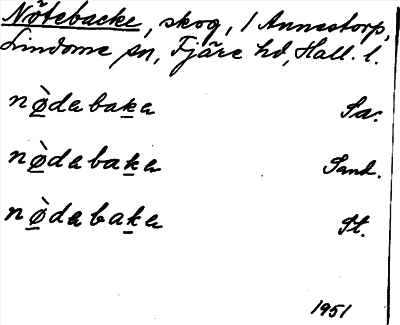 Nötebacke, skog, / Annestorp,
Lindome sn, Fjäre hd, Hall. l.
nø̀daba̱ka Sa.
nø̀daba̱ka Sand.
nø̀daba̱ka St.
1951